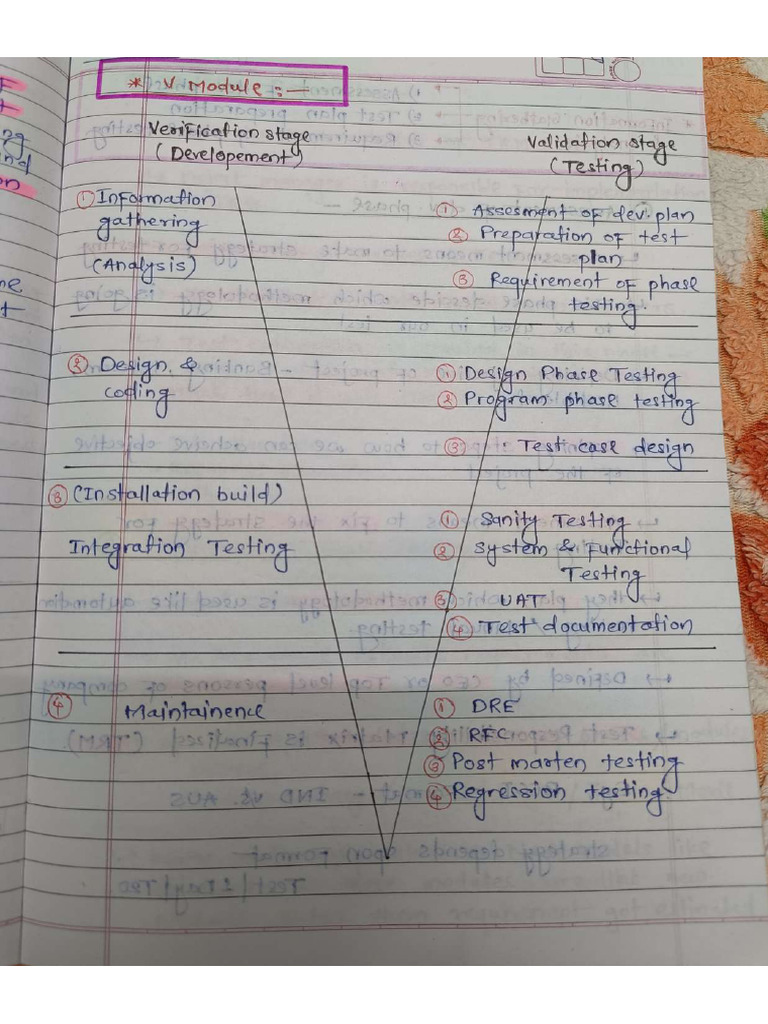 * V. Module :-
Verification stage
(Developement)
Validation stage
(Testing)
① Information
gathering
(Analysis)
① Assesment of dev. plan
② Preparation of test
plan
③ Requirement of phase
testing.
② Design & 
coding
① Design Phase Testing
② Program phase testing
③ Testcase design
③ (Installation build)
Integration Testing
① Sanity Testing
② System & Functional
Testing
③ UAT
④ Test documentation
④ Maintainence
① DRE
② RFC
③ Post marten testing
④ Regression testing.